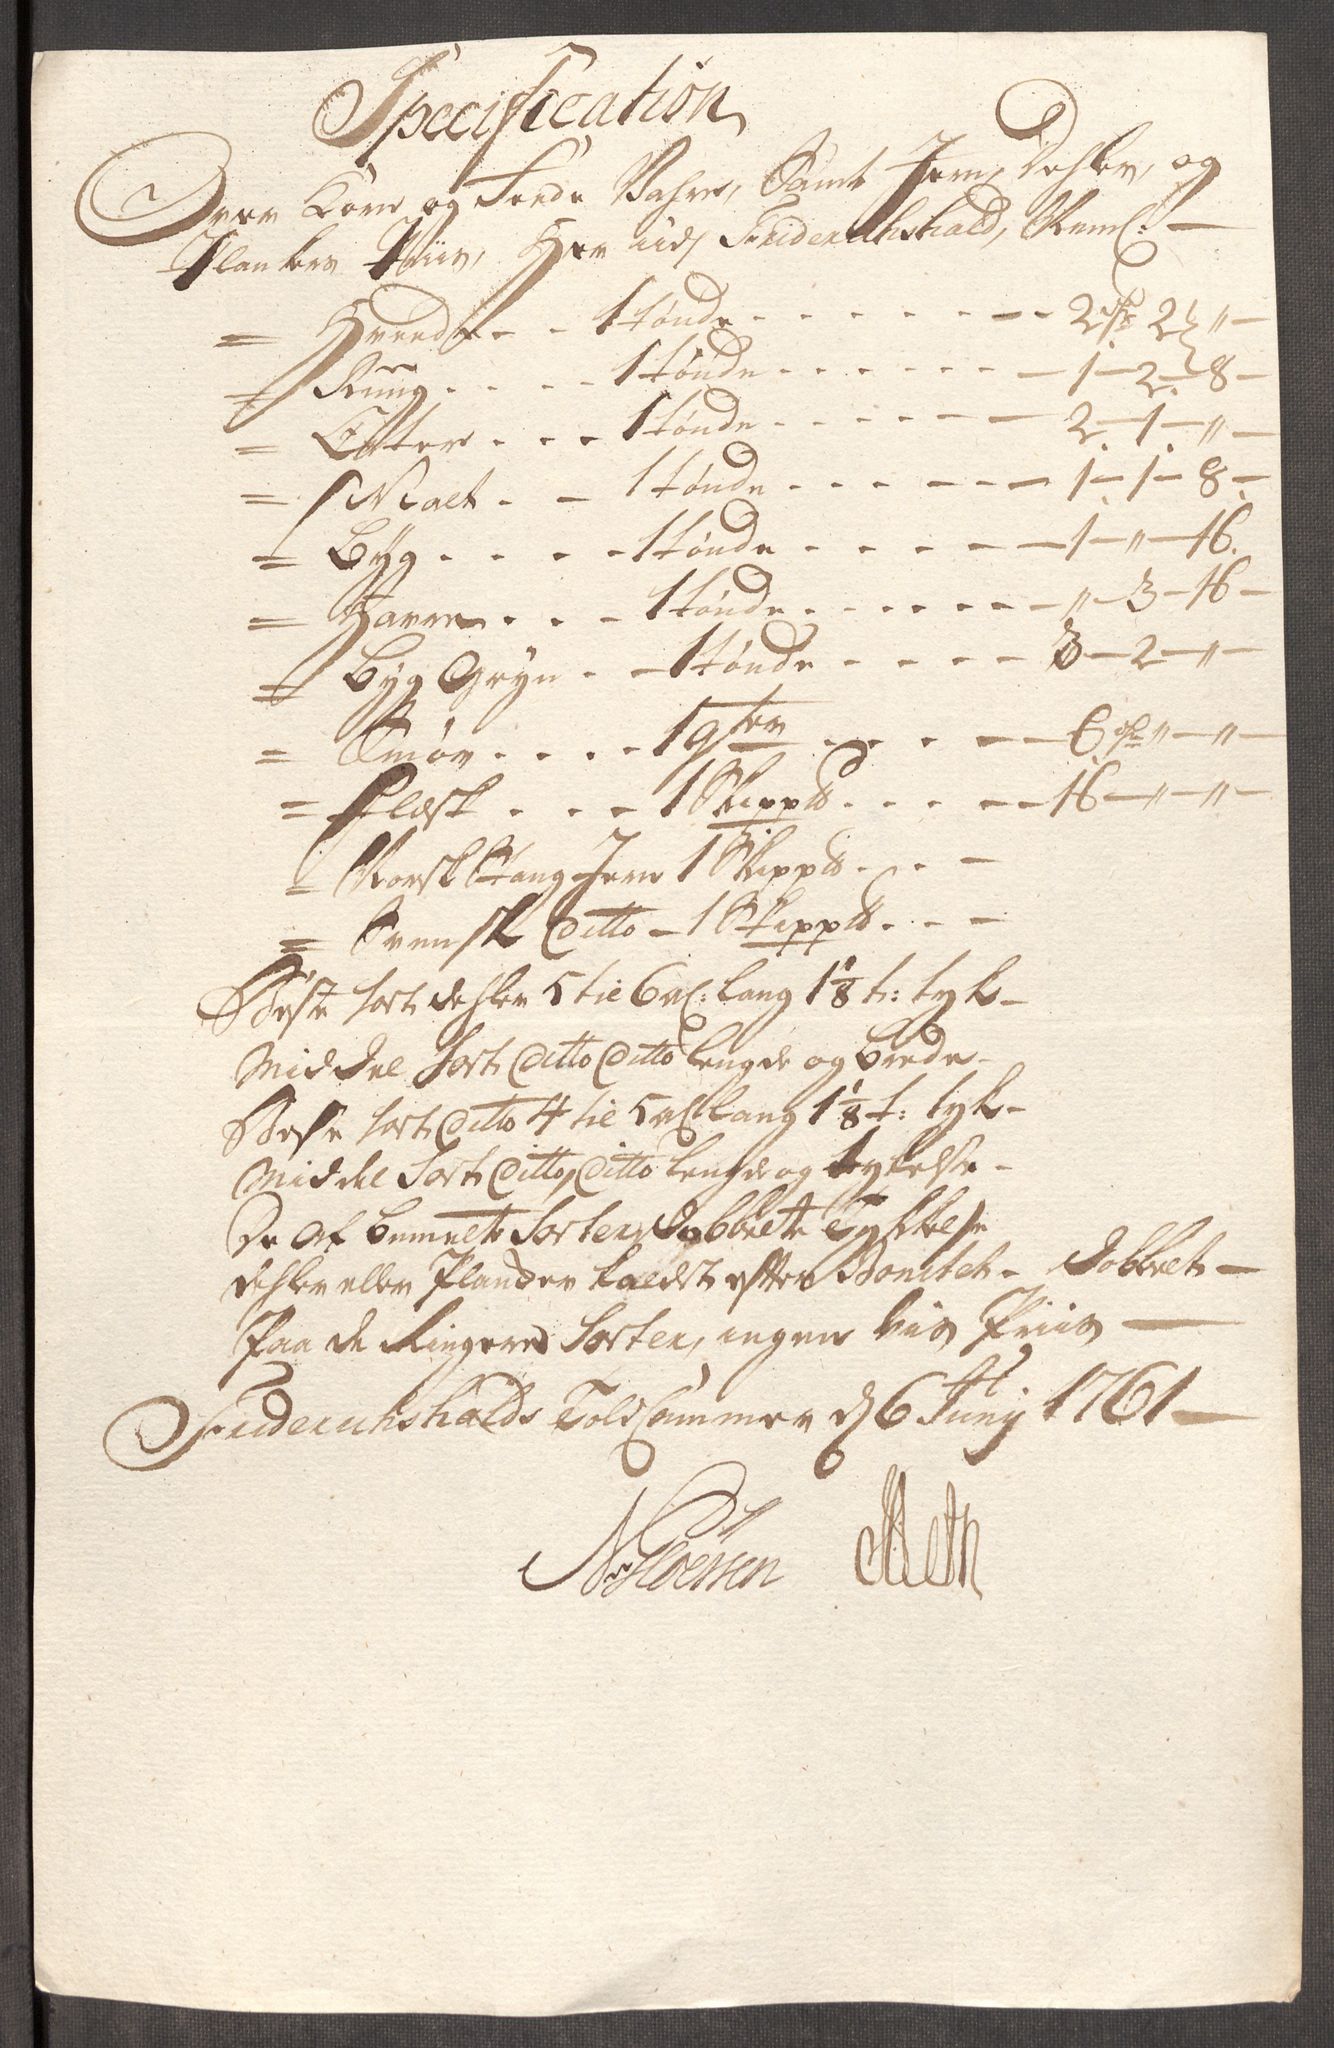 Specification
Over Korn og Fede Vahre, Samt Jern, Dehler, og
Plankers Priis, Her ved Friderichshald, Neml:
= Hvede - - 1 tønde - - - - - - - 2 rd 2 " -
= Rüug - - - - 1 tønde - - - - - - 1 - 2 - 8 -
= Erter - - - 1 tønde - - - - - - 2 - 1 - " -
= Malt - - 1 tønde - - - - - - 1 - 1 - 8 -
= Byg - - - - 1 tønde - - - - - 1 - " - 16.
= Havre - - - 1 tønde - - - - - - " - 3 - 16 -
= Byg Gryn - - 1 tønde - - - - 3 - 2 - " -
= Smør - - - - 1 - - - - - 6 rd " - " -
= Flesk - - - 1 Skippd - - - - - 16 - " - " -
= Norsk Stang Jern 1 Skippd - - -
= Svensk Ditto - 1 Skippd - - -
Beste sort dehler 5 til 6 al: lang 1 1/8 t: tyk -
Middel Sort Ditto Ditto lengde og brede -
Beste sort Ditto 4 til 5 al lang 1 1/8 t: tyk -
Middel Sort Ditto, Ditto lengde og tykelse -
De af bemelte Sorter, dobbelte Tykkelse
dehler eller Plancker kaldet efter Bonitet - dobbelt -
Paa de Ringere Sorter, ingen vis Priis
Friderichshalds Told Cammer d 6 Junij 1761